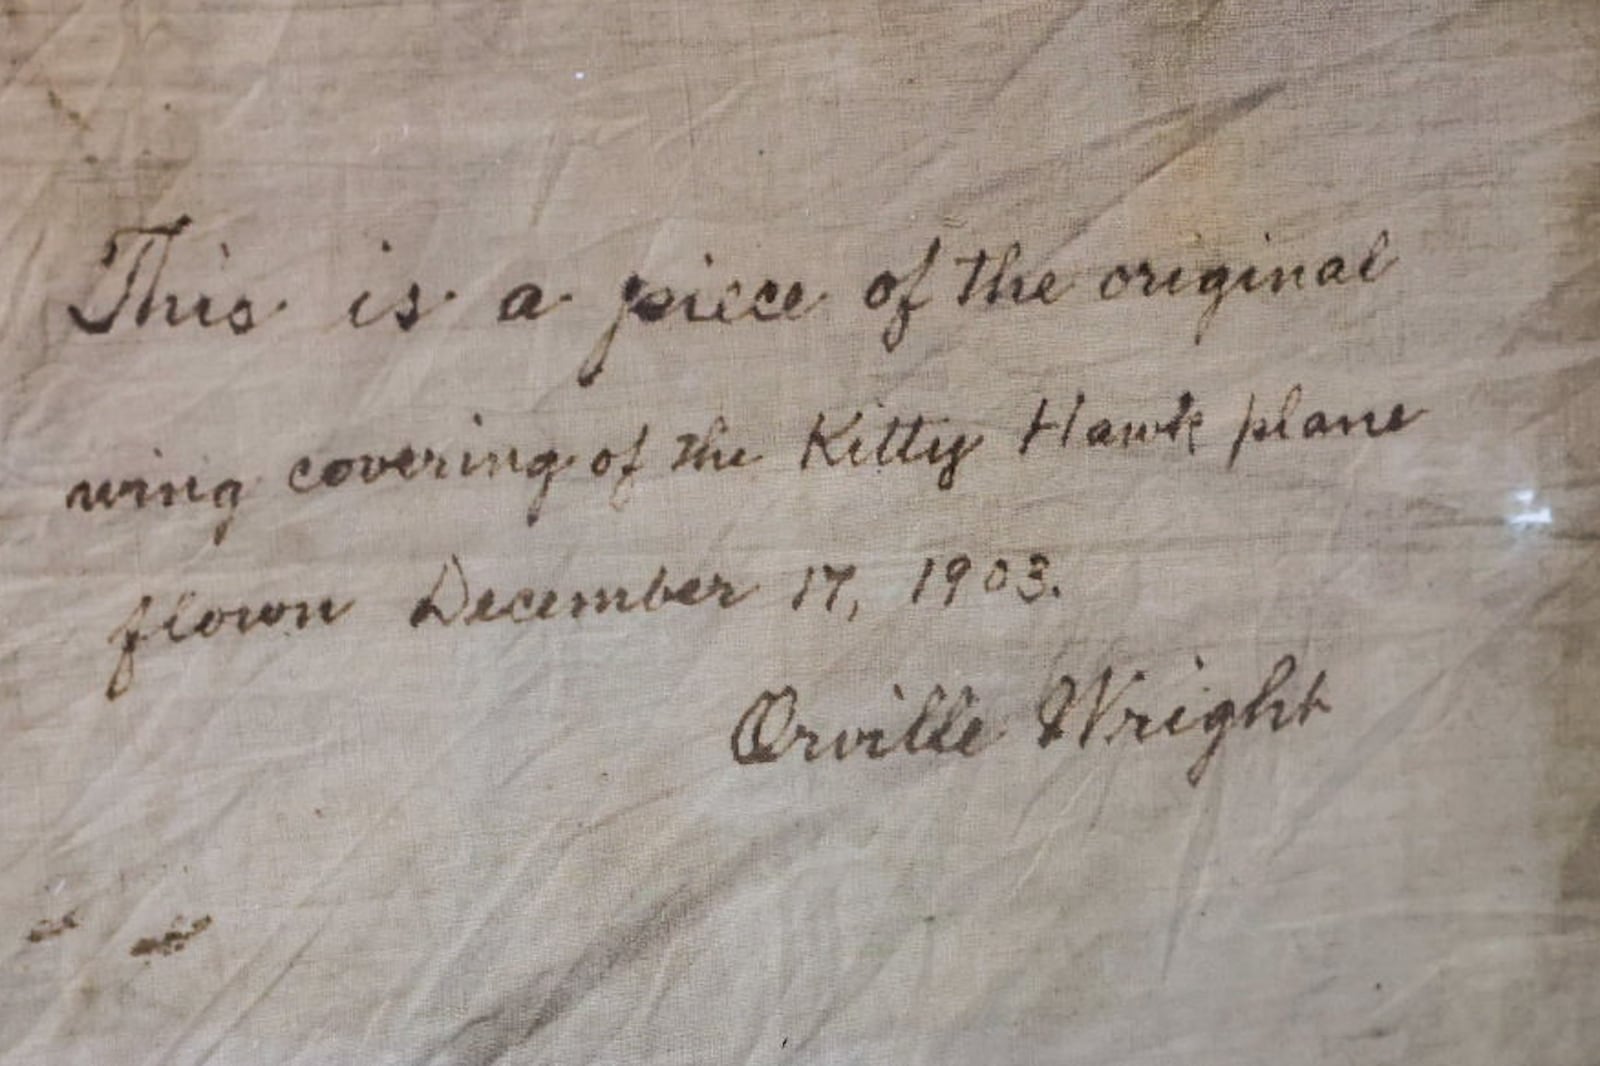 This is a piece of the original
wing covering of the Kitty Hawk plane
flown December 17, 1903.
Orville Wright